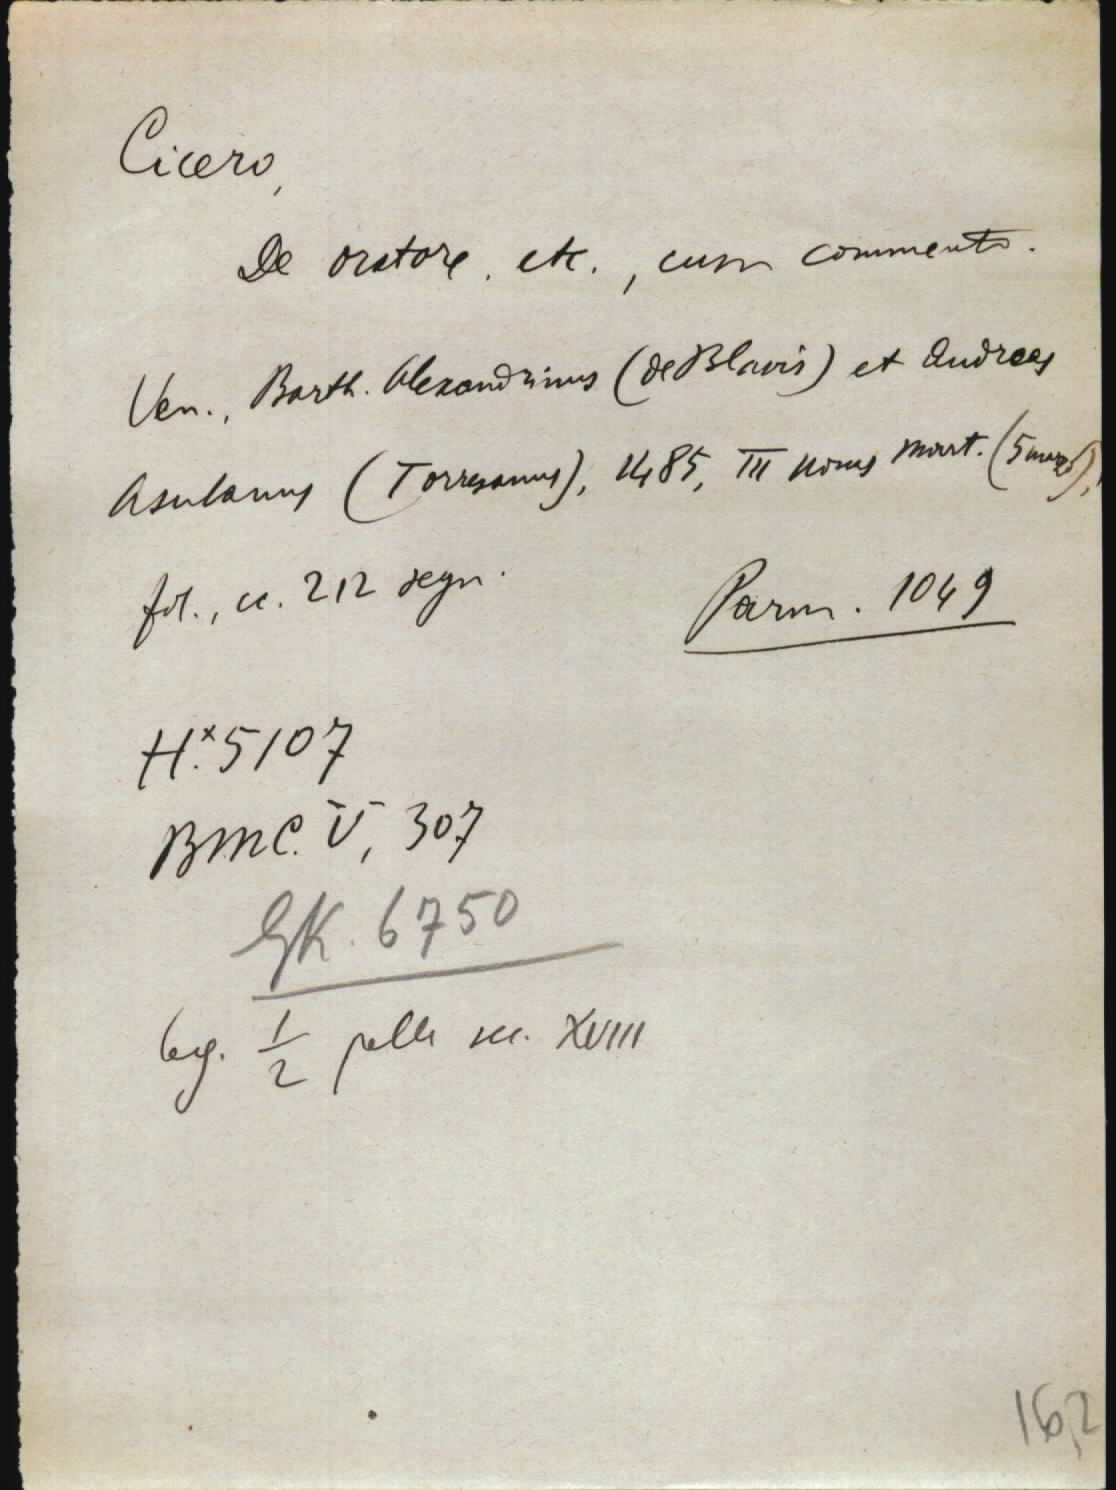 Cicero,
De oratore. etc., cum commento.
Ven., Barth. Alexandrinus (de Blavis) et Andreas
Asulanus (Torresanus), 1485, III nonas Mart. (5 marzo),
fol., cc. 212 segn.
Parm. 1049
H.x 5107
BMC. V, 307
GK. 6750
leg. 1/2 pelle sec. XVIII
162